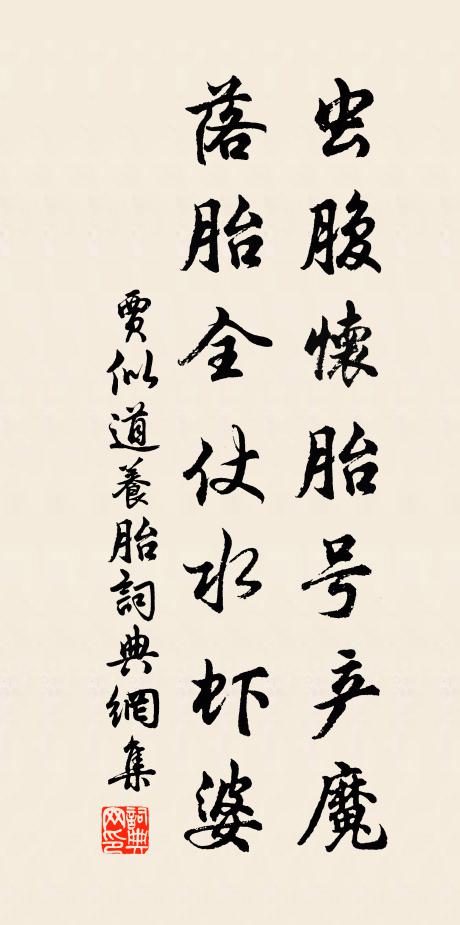 虫腹懷胎号产魔
落胎全仗水虾婆
賈似道養胎詞典網集
詞典網印